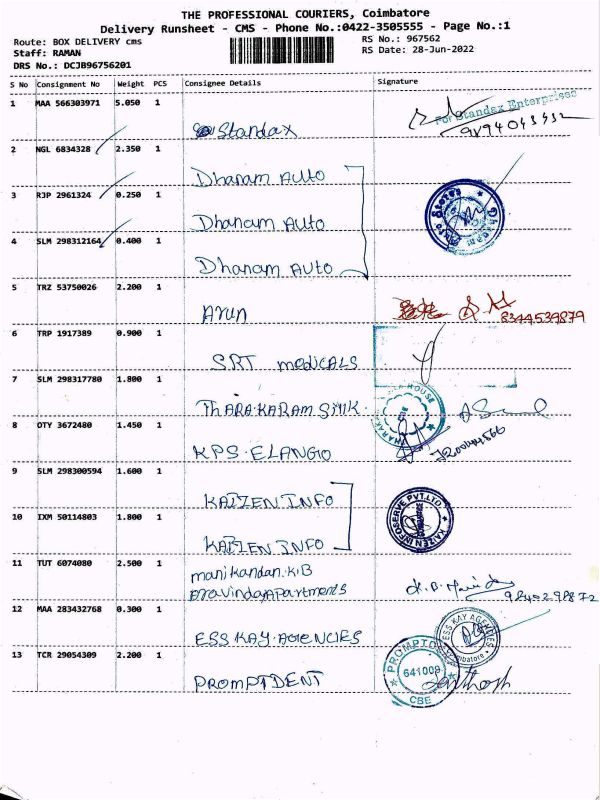 THE PROFESSIONAL COURIERS, Coimbatore
Delivery Runsheet - CMS - Phone No.:0422-3505555 - Page No.:1
Route: BOX DELIVERY cms
RS No.: 967562
Staff: RAMAN
RS Date: 28-Jun-2022
DRS No.: DCJB96756201
S No Consignment No Weight PCS Consignee Details Signature
1 MAA 566303971 5.050 1
Standax
For Standax Enterprises
2 NGL 6834328 2.350 1
Dhanam Auto
3 RJP 2961324 0.250 1
Dhanam Auto
Dhanam Auto Stores
4 SLM 298312164 0.400 1
Dhanam Auto
5 TRZ 53750026 2.200 1
Arun
8344539879
6 TRP 1917389 0.900 1
SRT medicals
7 SLM 298317780 1.800 1
THARAKARAM Silk
8 OTY 3672480 1.450 1
KPS. ELANGO
9 SLM 298300594 1.600 1
KAIZEN INFO
KAIZEN INFOSERVE PVT.LTD.
10 IXM 50114803 1.800 1
KAIZEN INFO
11 TUT 6074080 2.500 1
manikandan. K.B
Aravindapartments
12 MAA 283432768 0.300 1
ESS KAY AGENCIES
ESS KAY AGENCIES
Coimbatore
13 TCR 29054309 2.200 1
PROMPTDENT
641009
CBE